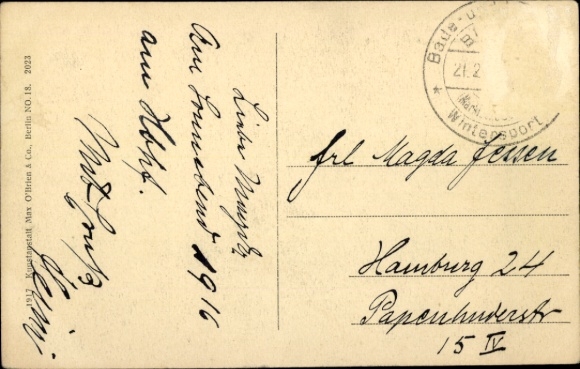 Bade- u
21.2
Wintersport
Am Sonnabend 1916
am Hbhf.
Mit Gruß
Frl Magda Jessen
Hamburg 24
Papenhuderstr
15 IV
1917 Kunstanstalt Max O'Brien & Co., Berlin NO.18. 2023